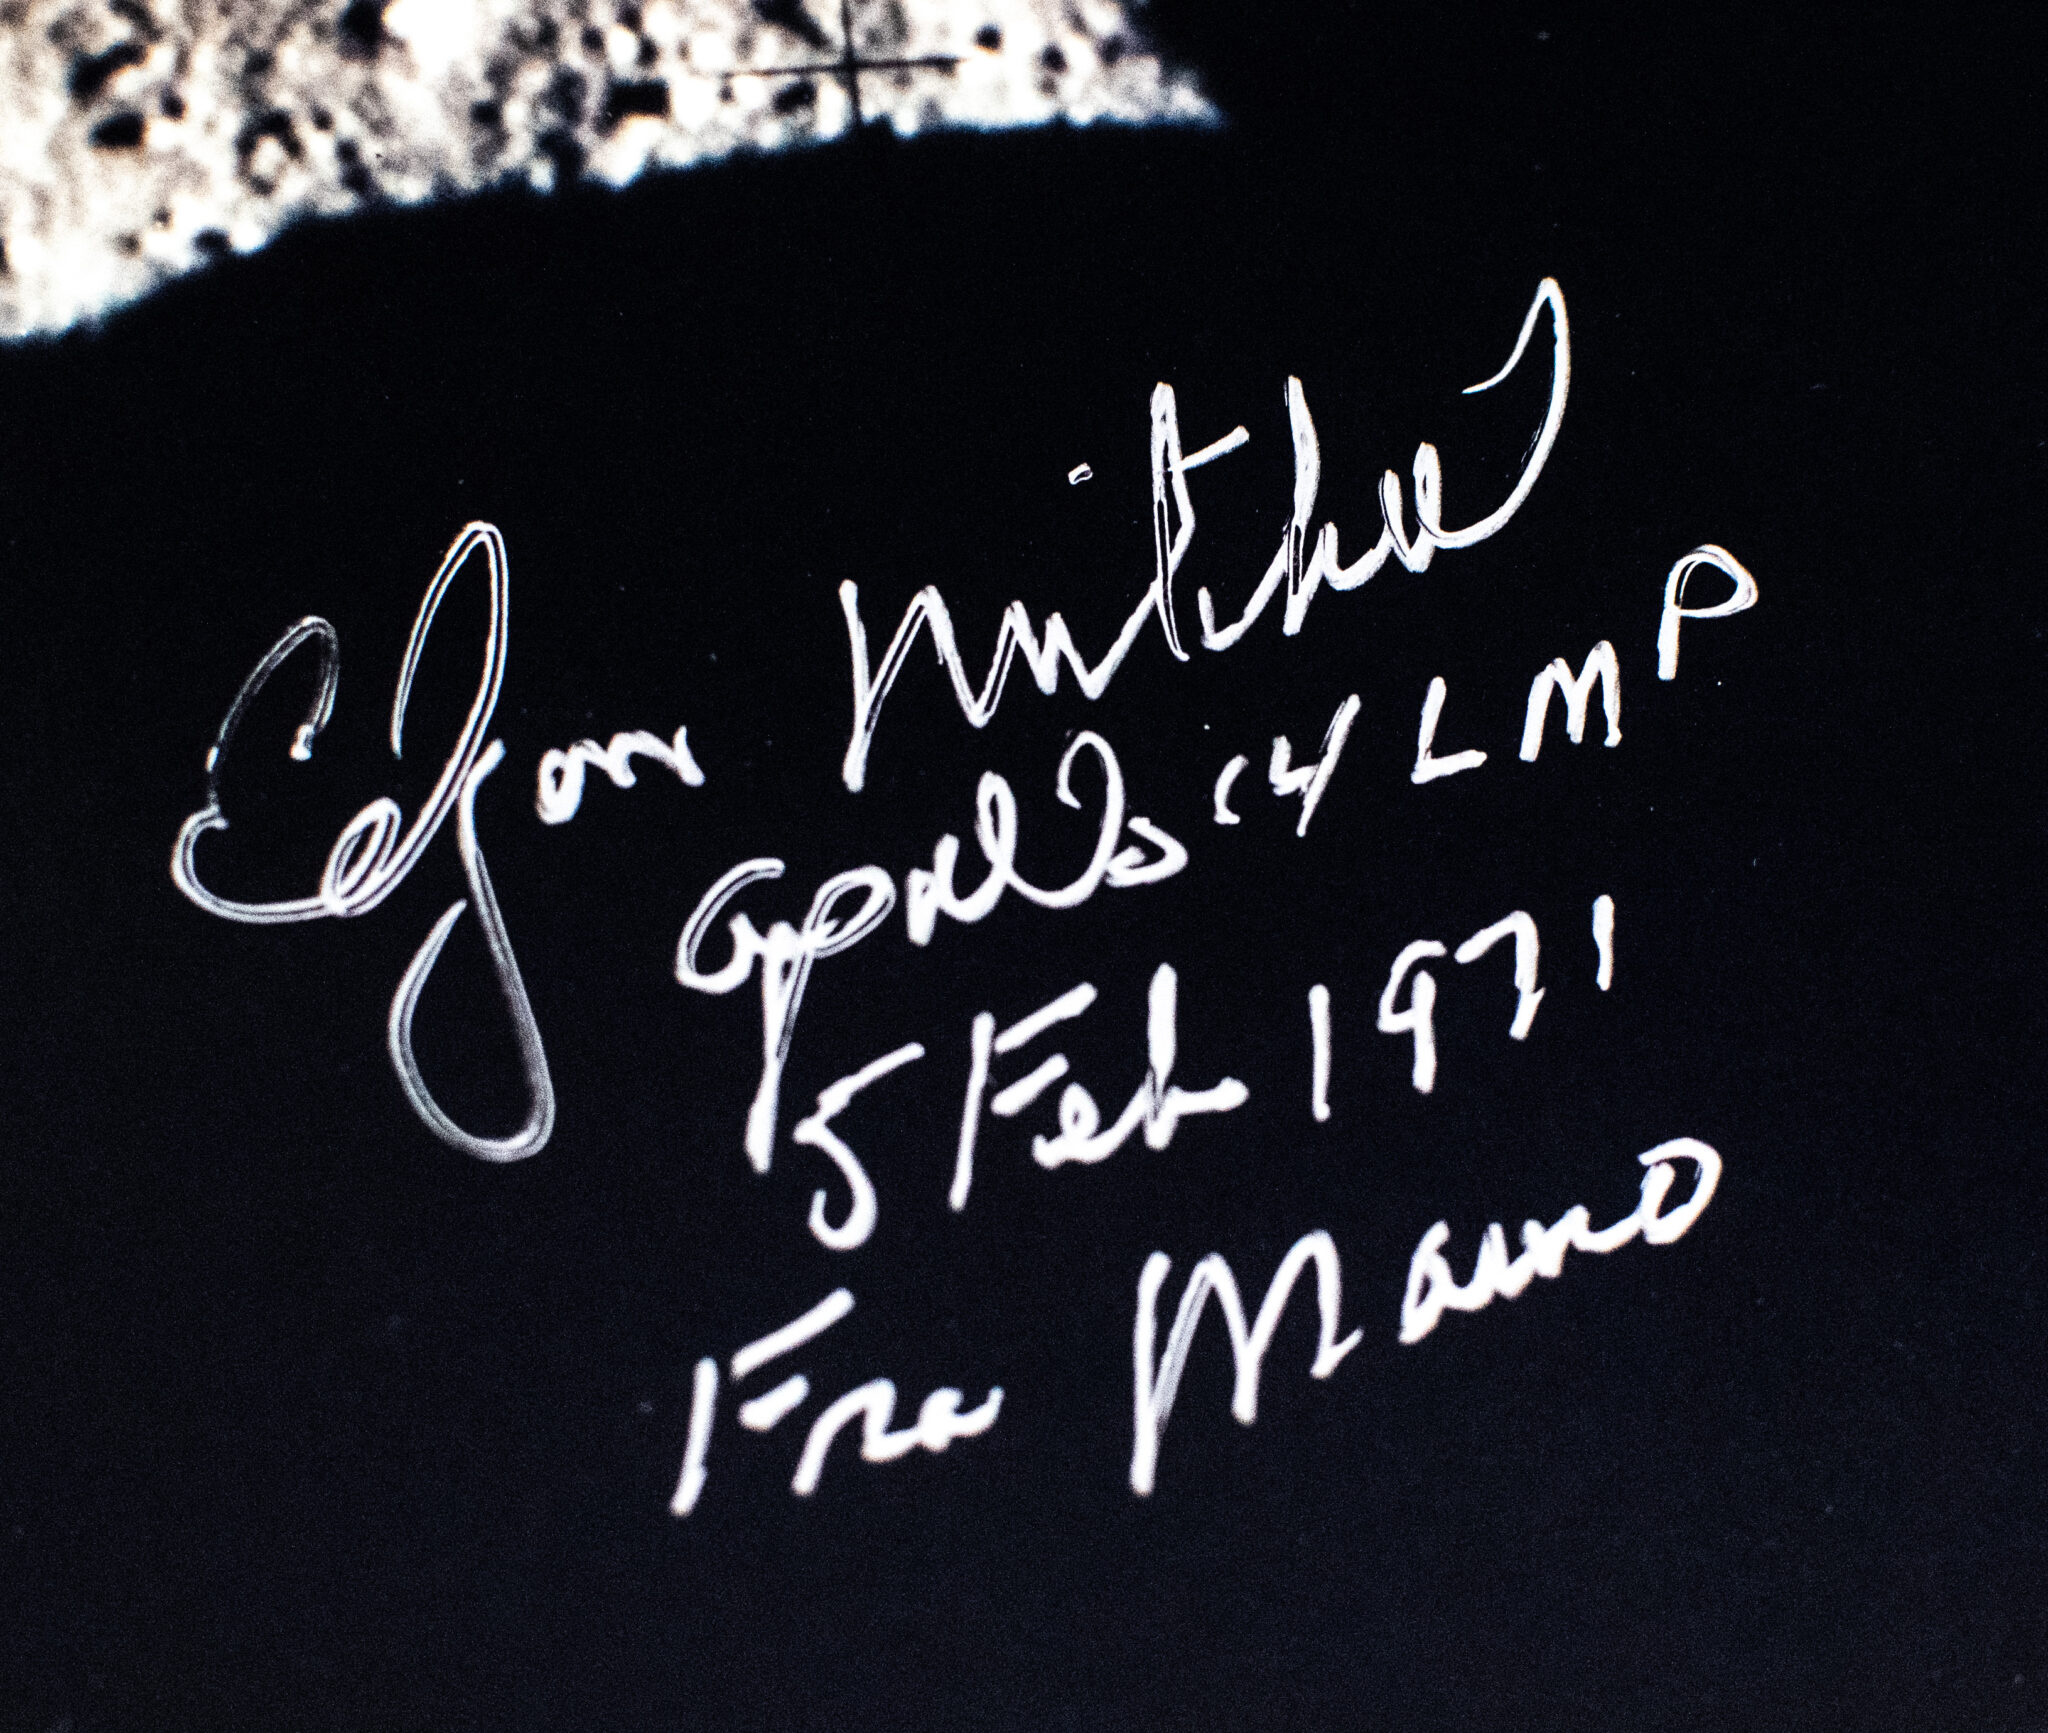 Edgar Mitchell
Apollo 14 LMP
5 Feb 1971
Fra Mauro